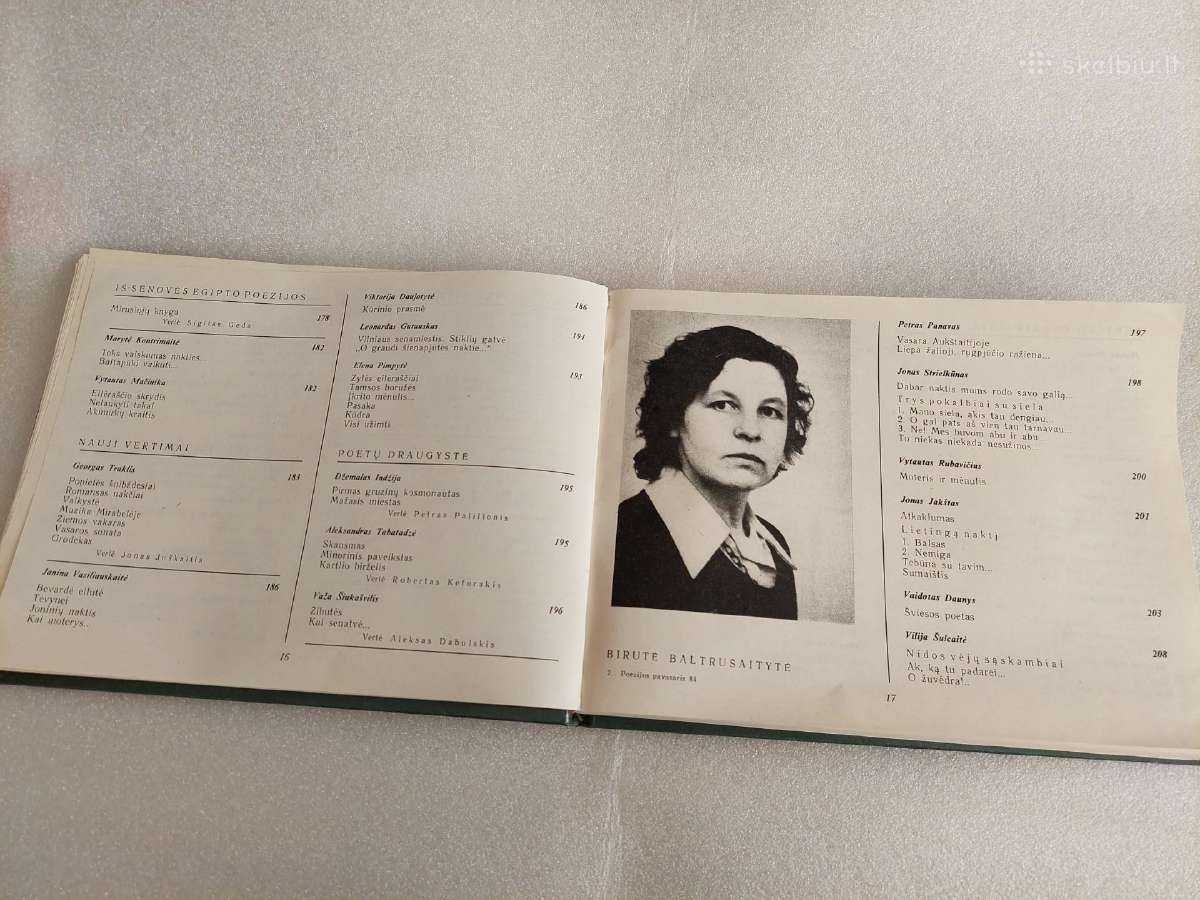 skelbiu.lt
IŠ SENOVĖS EGIPTO POEZIJOS
Mirusiųjų knyga 178
Vertė Sigitas Geda
Marytė Kontrimaitė 182
Toks vaiskumas nakties...
Baltapūki vaikuti...
Vytautas Mačinika 182
Eilėraščio skrydis
Nelaukyti taka!
Akmirkų kraitis
NAUJI VERTIMAI
Georgas Traklis 183
Popietės šnibždesiai
Romansas nakčiai
Vaikystė
Muzika Mirabelėje
Žiemos vakaras
Vasaros sonata
Grodekas
Vertė Jonas Juškaitis
Janina Vasiliauskaitė 186
Bevardė eilutė
Tėvynei
Joninių naktis
Kai moterys..
16
Viktorija Daujotytė 186
Kūrinio prasmė
Leonardas Gutauskas 191
Vilniaus senamiestis. Stiklių gatvė
„O graudi šienapjūtės naktie..."
Elena Pimpytė 193
Zylės eilėraščiai
Tamsos boružės
Įkrito mėnulis...
Pasaka
Kūdra
Visi užimti
POETŲ DRAUGYSTĖ
Džemalas Indžija 195
Pirmas gruzinų kosmonautas
Mažasis miestas
Vertė Petras Palilionis
Aleksandras Tabatadzė 195
Skausmas
Minorinis paveikslas
Kartlio birželis
Vertė Robertas Keturakis
Važa Šiukašvilis 196
Žibutės
Kai senatvė...
Vertė Aleksas Dabulskis
BIRUTĖ BALTRUŠAITYTĖ
2. Poezijos pavasaris 84
Petras Panavas 197
Vasara Aukštaitijoje
Liepa žalinji, rugpjūčio ražiena...
Jonas Strielkūnas 198
Dabar naktis mums rodo savo galią...
Trys pokalbiai su siela
1. Mano siela, akis tau dengiau...
2 O gal pats aš vien tau tarnavau
3. Ne! Mes buvom abu ir abu
Tu niekas niekada nesužinos...
Vytautas Rubavičius 200
Moteris ir mėnulis
Jonas Jakštas 201
Atkaklumas
Lietingą naktį
1. Balsas
2. Nemiga
Tebūna su tavim...
Sumaištis
Vaidotas Daunys 203
Šviesos poetas
Vilija Šulcaitė 208
Nidos vėjų sąskambiai
Ak, ką tu padarei...
O žuvėdra!..
17